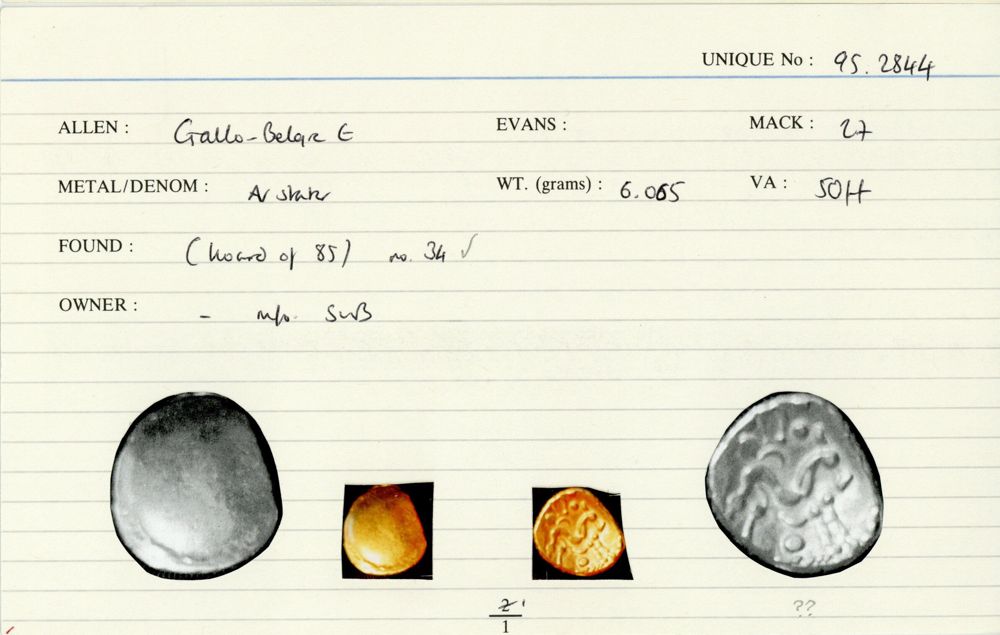 UNIQUE No : 95.2844
ALLEN : Gallo-Belgic E EVANS : MACK : 27
METAL/DENOM : AV stater WT. (grams) : 6.065 VA : 50
FOUND : (hoard of 85) no. 34 ✓
OWNER : - info. SWB
1
??